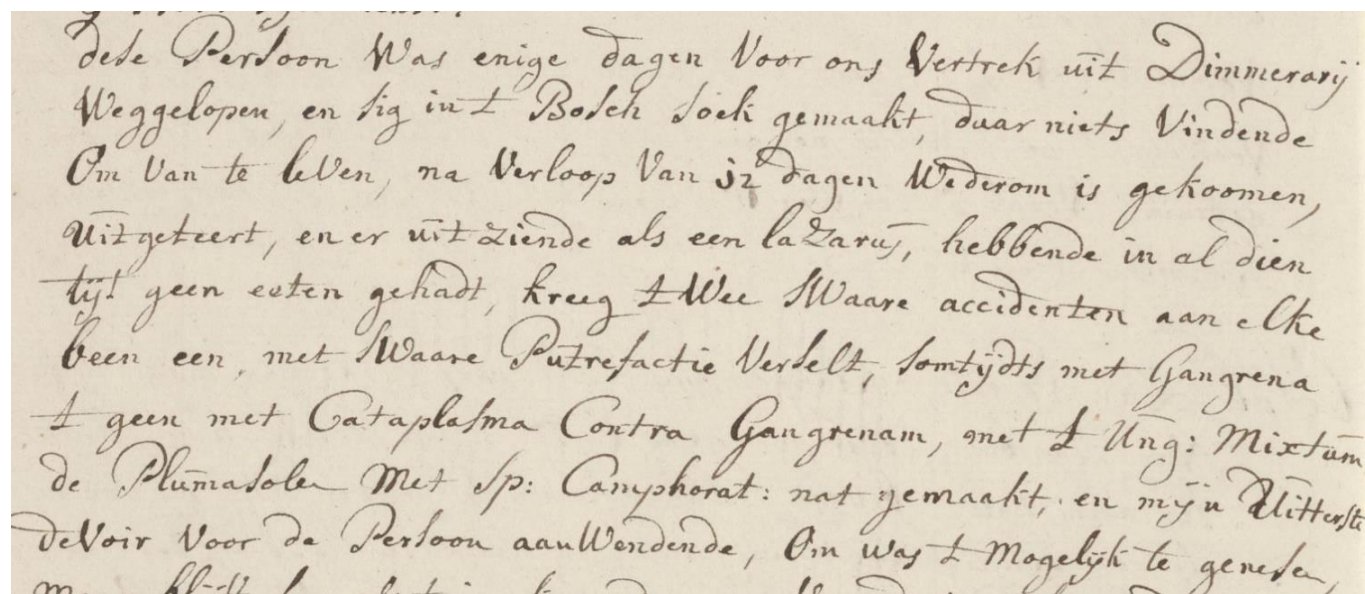 dese Persoon Was enige dagen Voor ons Vertrek uit Dimmerarij
Weggelopen, en sig in t Bosch soek gemaakt, daar niets Vindende
Om Van te leven, na Verloop Van 12 dagen Wederom is gekoomen,
uitgeteert, en er uit ziende als een lazarus, hebbende in al dien
tijt geen eeten gehadt, kreeg t Wee sWaare accidenten aan elke
been een, met sWaare Putrefactie Verselt, somtijdts met Gangrena
t geen met Cataplasma Contra Gangrenam, met t Ung: Mixtum
de Plumasole Met Sp: Camphorat: nat gemaakt, en mijn Uitterste
deVoir Voor de Persoon aanWendende, Om was t Mogelijk te genesen,